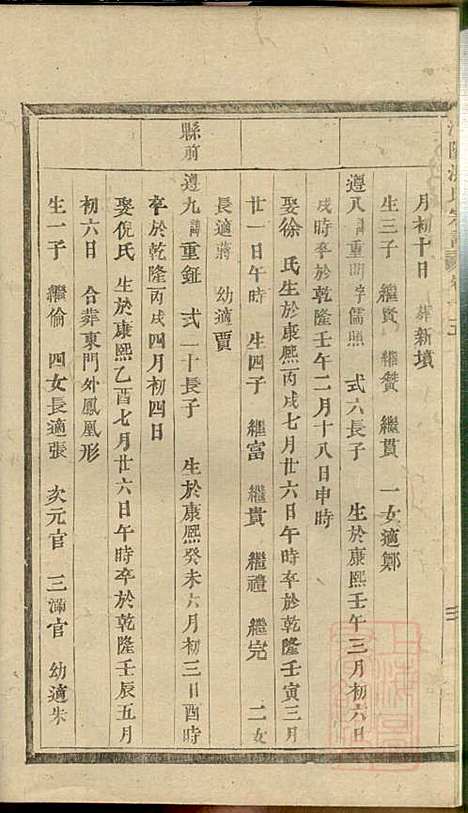 月初十日 葬新墳
生三子 繼賢 繼贊 繼貫 一女適鄭
遵八 諱重明字儒照 式六長子 生於康熙壬午三月初六日
戌時卒於乾隆壬午二月十八日申時
娶徐氏生於康熙丙戌七月廿六日午時卒於乾隆壬寅三月
廿一日午時 生四子 繼富 繼貴 繼禮 繼完 二女
長適蔣 幼適賈
縣前
遵九 諱重鉦 式一十長子 生於康熙癸未六月初三日酉時
卒於乾隆丙戌四月初四日
娶倪氏生於康熙乙酉七月廿六日午時卒於乾隆壬辰五月
初六日 合葬東門外鳳凰形
生一子 繼倫 四女長適張 次元官 三滿官 幼適朱